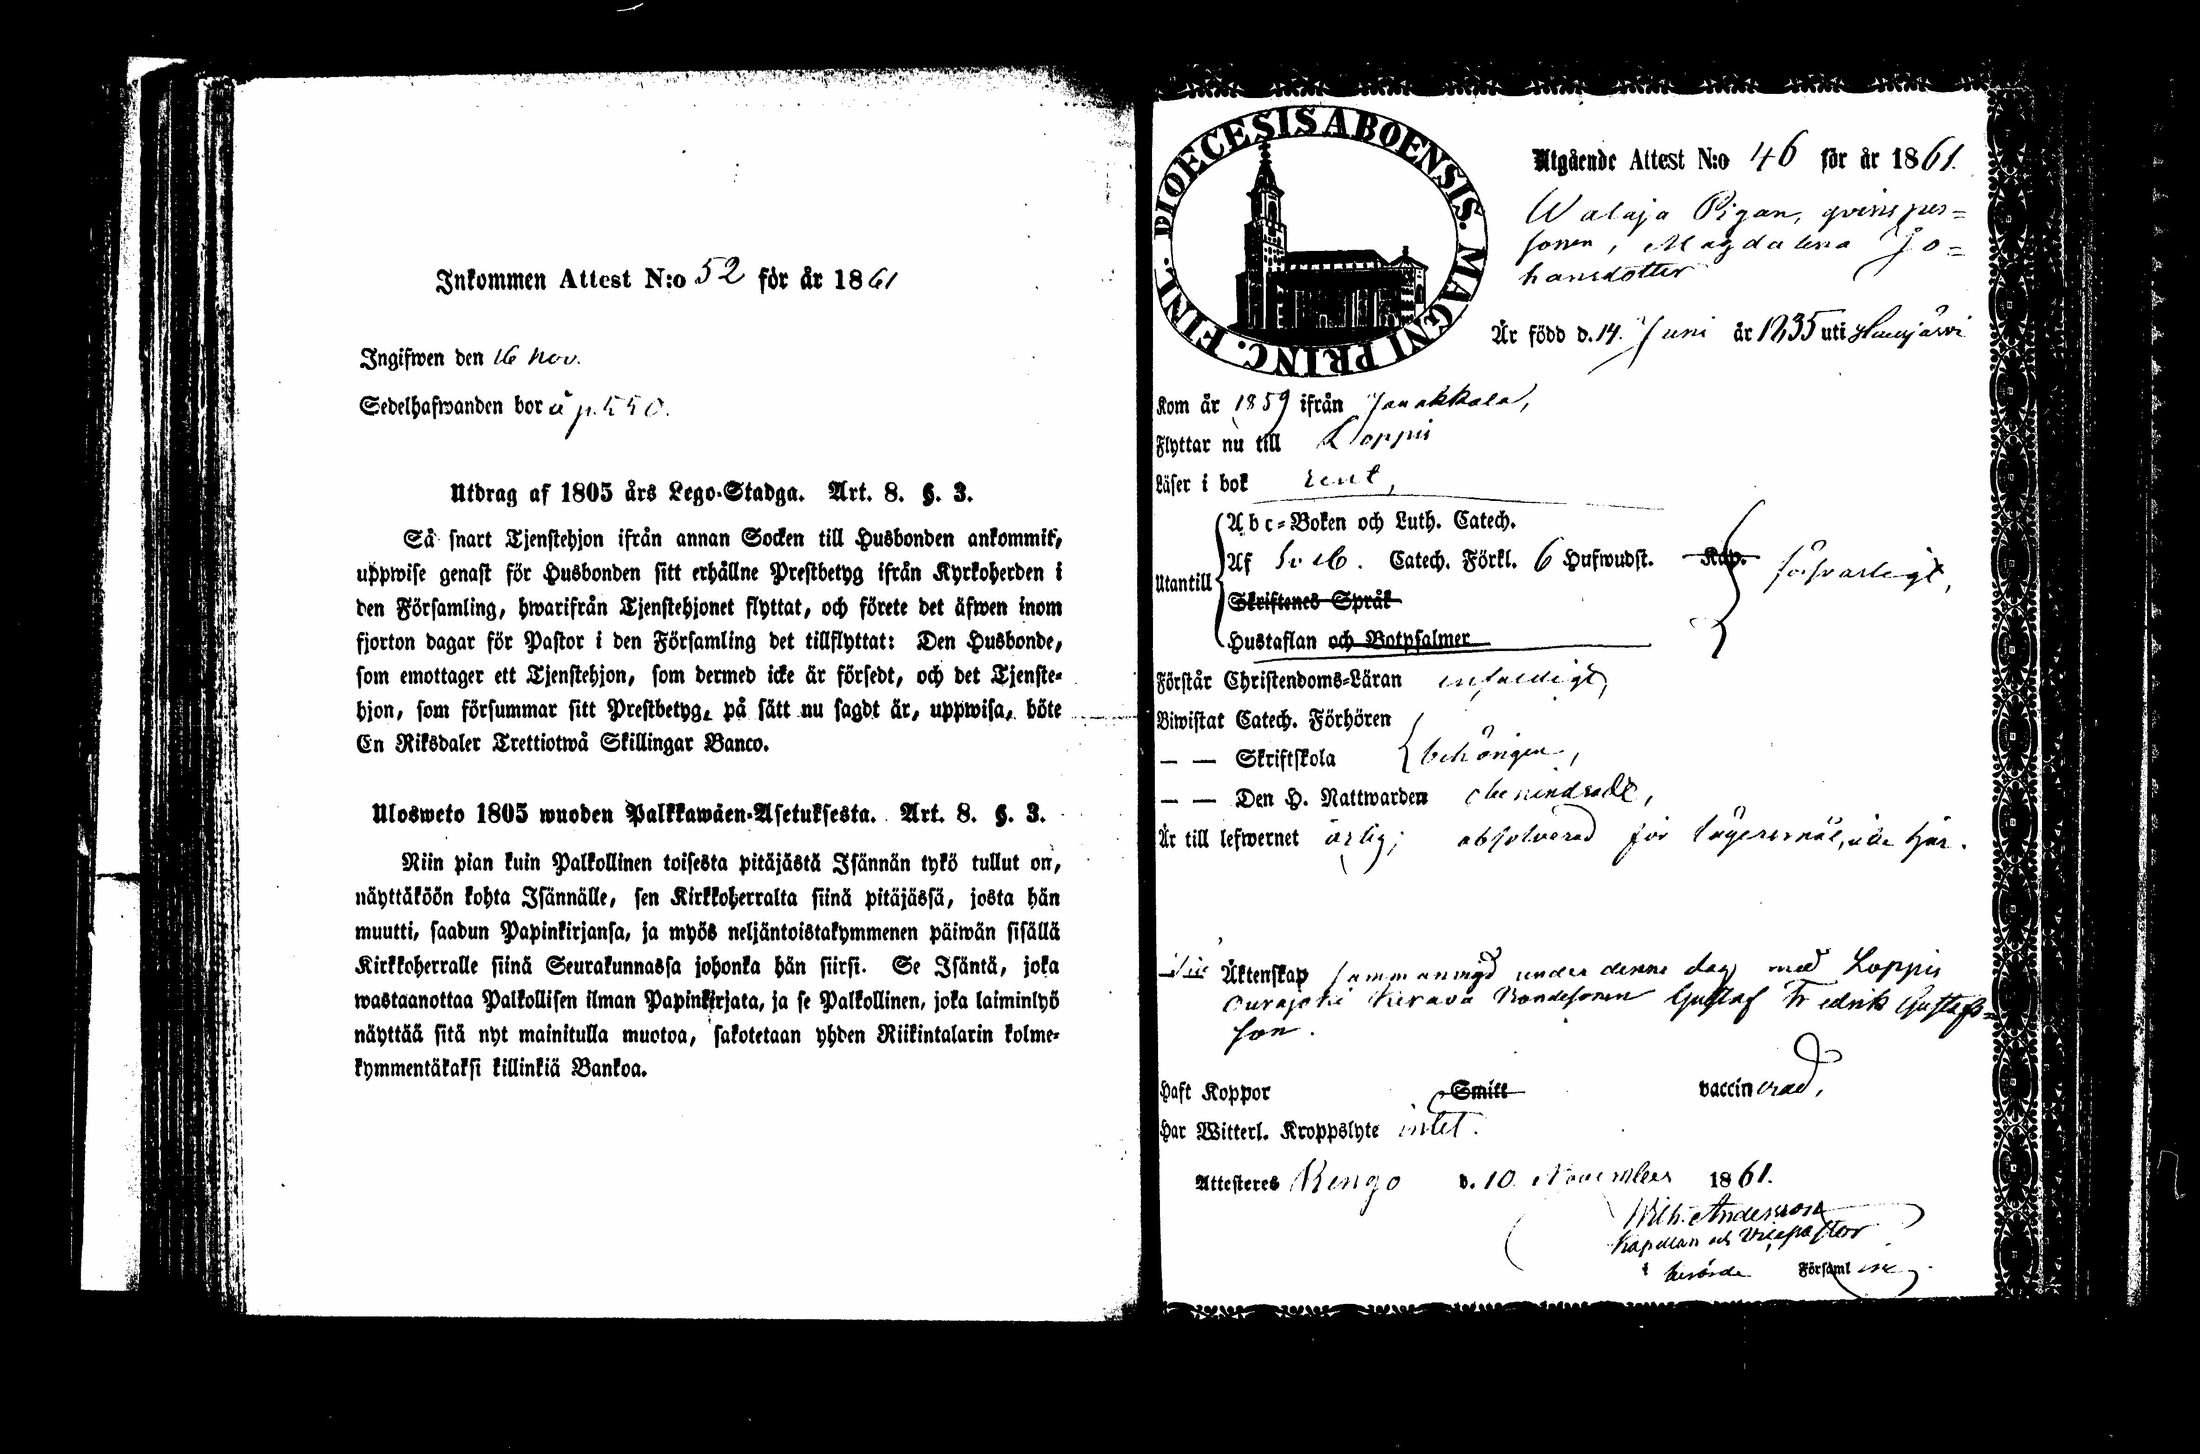 Inkommen Attest N:o 52 för år 1861
Ingifwen den 16 Nov.
Sedelhafwanden bor å p. 550.
Utdrag af 1805 års Lego-Stadga. Art. 8. §. 3.
Så snart Tjenstehjon ifrån annan Socken till Husbonden ankommit,
uppwise genast för Husbonden sitt erhållne Prestbetyg ifrån Kyrkoherden i
den Församling, hwarifrån Tjenstehjonet flyttat, och förete det äfwen inom
fjorton dagar för Pastor i den Församling det tillflyttat: Den Husbonde,
som emottager ett Tjenstehjon, som dermed icke är försedt, och det Tjenste-
hjon, som försummar sitt Prestbetyg, på sätt nu sagdt är, uppwisa, böte
En Riksdaler Trettiotwå Skillingar Banco.
Ulosweto 1805 wuoden Palkkawäen-Asetuksesta. Art. 8. §. 3.
Niin pian kuin Palkollinen toisesta pitäjästä Isännän tykö tullut on,
näyttäköön kohta Isännälle, sen Kirkkoherralta siinä pitäjässä, josta hän
muutti, saadun Papinkirjansa, ja myös neljäntoistakymmenen päiwän sisällä
Kirkkoherralle siinä Seurakunnassa johonka hän siirsi. Se Isäntä, joka
wastaanottaa Palkollisen ilman Papinkirjata, ja se Palkollinen, joka laiminlyö
näyttää sitä nyt mainitulla muotoa, sakotetaan yhden Riikintalarin kolme-
kymmentäkaksi killinkiä Bankoa.
DIOECESIS ABOENSIS. MAGNI PRINC. FINL.
Utgående Attest N:o 46 för år 1861.
Walaja Pigan, qvinsper=
sonen, Magdalena Jo=
hansdotter
Är född d. 14. Juni år 1835 uti Hausjärvi
Kom år 1859 ifrån Janakkala,
Flyttar nu till Loppis
Läser i bok rent,
Utantill
Abc=Boken och Luth. Catech.
Af Catech. Förkl. 6 Hufwudst. Kap. försvarligt,
Skriftenes Språk
Hustaflan och Botpsalmer
Förstår Christendoms=Läran enfaldigt,
Biwistat Catech. Förhören
— — Skriftskola behörigen,
— — Den H. Nattwarden oberindrad,
Är till lefwernet ärlig; absolverad för lägersmål, icke här.
Till Äktenskap sammanvigd under denne dag med Loppis
Kerava Bondesonen Gustaf Fredrik Gustafs=
son.
Haft Koppor Smitt vaccinerad,
Har Witterl. Kroppslyte intet.
Attesteres Rengo d. 10 November 1861.
Wilh. Andersson
Kapellan och Vicepastor
i berörde Församling.